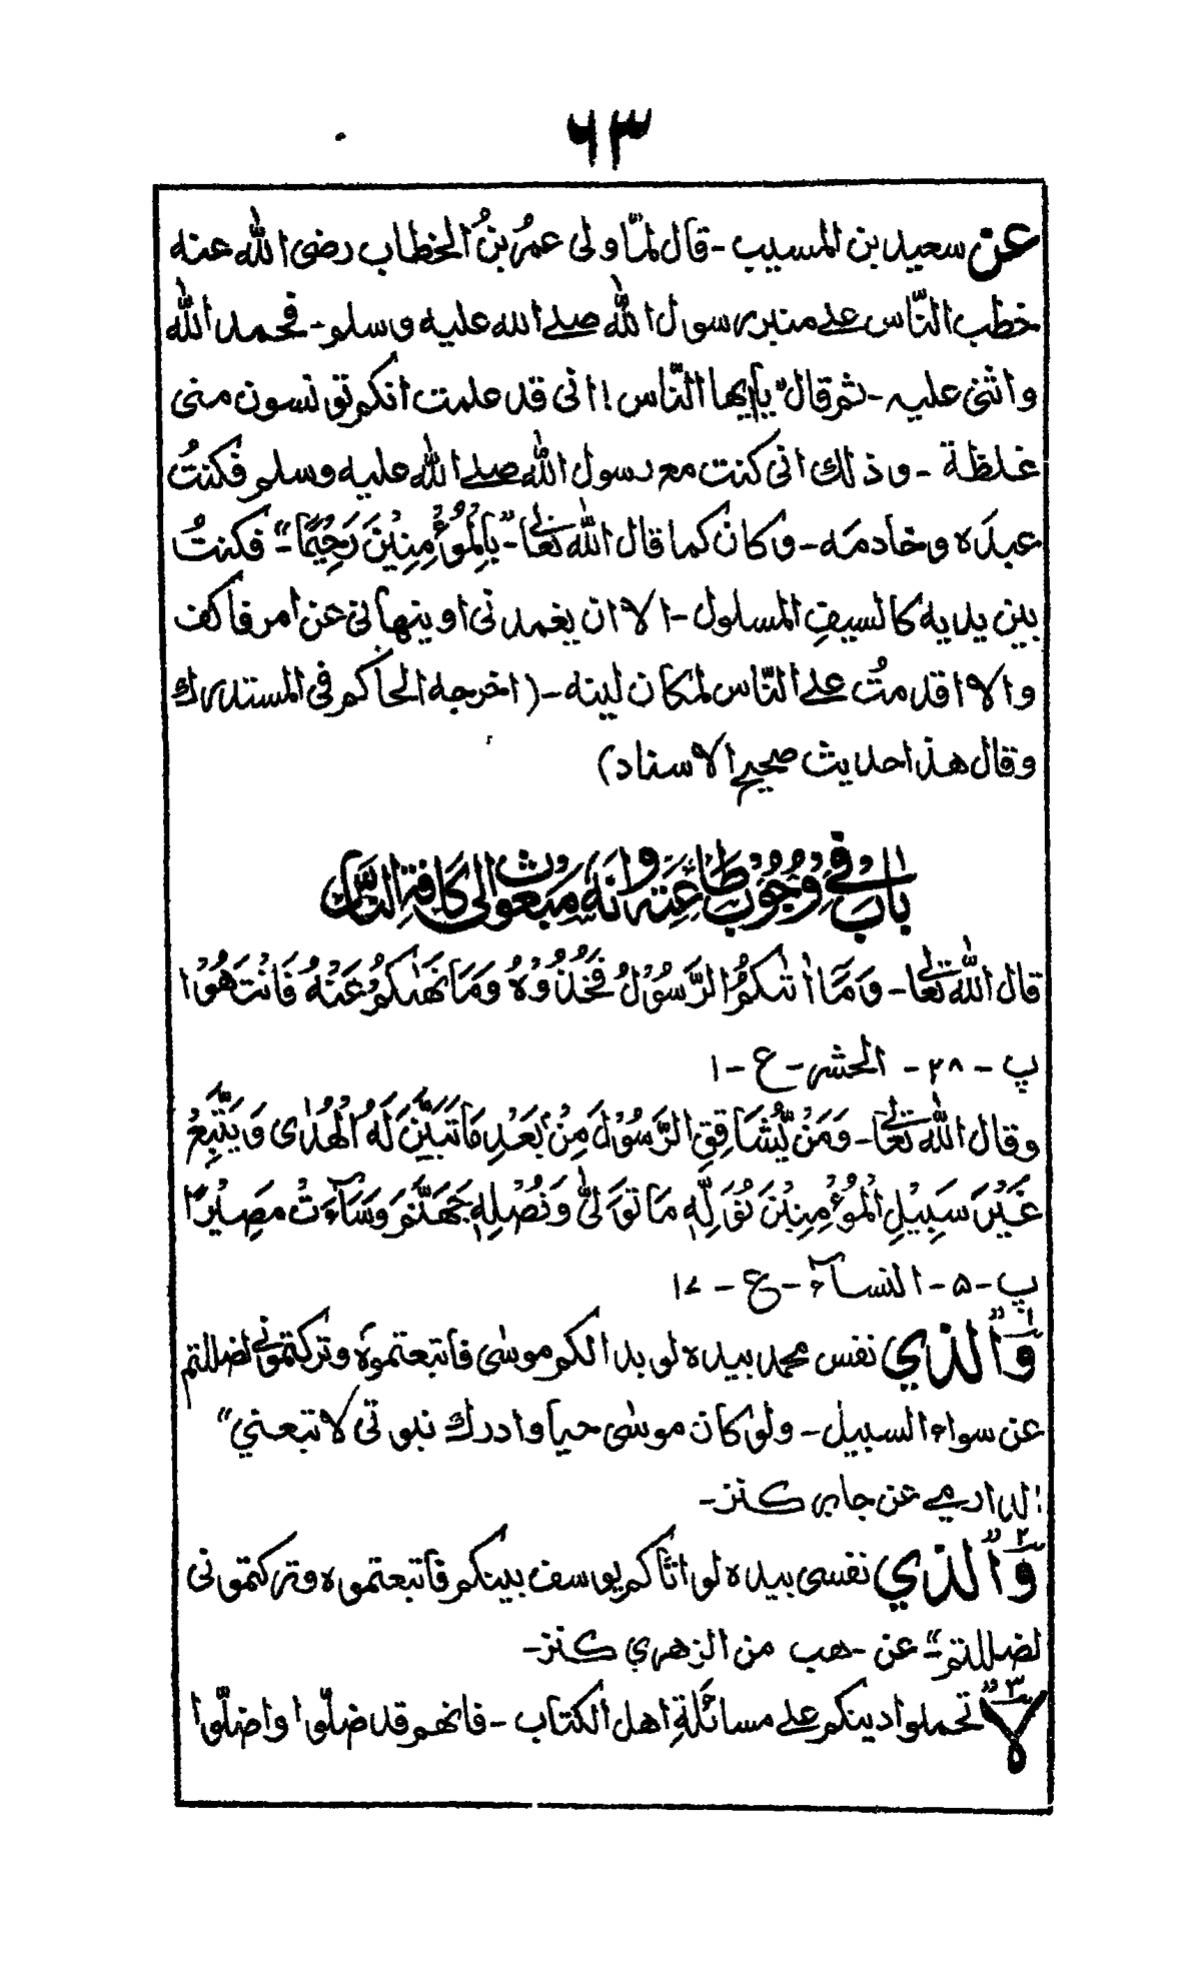 ٦٣
عن سعید بن المسیب - قال لمّا ولی عمرُ بنُ الخطاب رضی اللّٰه عنه
خطب النّاس علے منبر رسول اللّٰه صلے اللہ علیه وسلم - فحمد اللّٰه
واثنی علیه - ثم قال "یا ایها النّاس! انی قد علمت انکم تونسون منی
غلظة - وذلك انی کنت مع رسول اللّٰه صلے اللّٰه علیه وسلم فکنتُ
عبدَہ وخادمَه - وکان کما قال اللّٰه تعالٰی - "بِالْمُؤْمِنِیْنَ رَحِیْمًا -" فکنتُ
بین یدیه کالسیفِ المسلول - الا ان یغمدنی او ینهانی عن امر فاکف
والا اقدمتُ علے النّاس لمکان لینه - (اخرجه الحاکم فی المستدرك
وقال هذا حدیث صحیح الاسناد)
بَابٌ فِیْ وُجُوْبِ طَاعَتِهٖ وَاَنَّهٗ مَبْعُوْثٌ اِلٰی كَافَّةِ النَّاسِ
قال اللّٰه تعالٰی - وَمَا اٰتٰىکُمُ الرَّسُوْلُ فَخُذُوْهُ وَمَا نَهٰىکُمْ عَنْهُ فَانْتَهُوْا
پ - ۲۸ - الحشر - ع - ۱
وقال اللّٰه تعالٰی - وَمَنْ یُّشَاقِقِ الرَّسُوْلَ مِنْۢ بَعْدِ مَا تَبَیَّنَ لَهُ الْهُدٰی وَیَتَّبِعْ
غَیْرَ سَبِیْلِ الْمُؤْمِنِیْنَ نُوَلِّهٖ مَا تَوَلّٰی وَنُصْلِهٖ جَهَنَّمَ وَسَآءَتْ مَصِیْرًا
پ - ۵ - النسآء - ع - ۱۷
۱ "وَالذي نفس محمد بیدہ لو بدا لکم موسٰی فاتبعتموہ وترکتمونی لضللتم
عن سواء السبیل - ولو کان موسٰی حیا وادرك نبوتی لاتبعني"
الدارمے عن جابر کنز -
۲ "وَالذي نفسی بیدہ لو اتاکم یوسف بینکم فاتبعتموہ وترکتمونی
لضللتم -" عن - هب من الزهري کنز -
۳ "لا تحملوا دینکم علے مسائَلةِ اهل الکتاب - فانهم قد ضلّوا واضلّوا